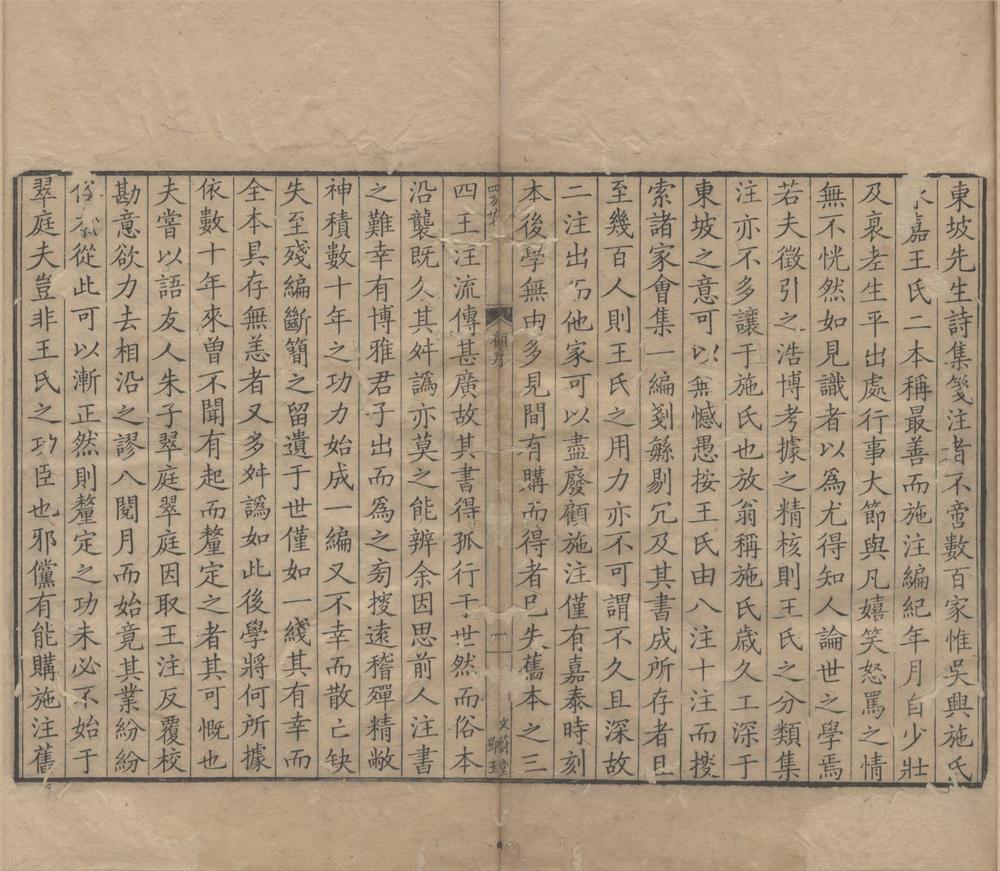 東坡先生詩集箋注者不啻數百家惟吳興施氏
嘉王氏二本稱最善而施注編紀年月自少壯
及衰老生平出處行事大節與凡嬉笑怒罵之情
無不恍然如見識者以爲尤得知人論世之學焉
若夫徵引之浩博考據之精核則王氏之分類集
注亦不多讓于施氏也放翁稱施氏歳久工深于
東坡之意可以無憾愚按王氏由八注十注而搜
索諸家會集一編剗繇剔冗及其書成所存者且
至幾百人則王氏之用力亦不可謂不久且深故
二注出而他家可以盡廢顧施注僅有嘉泰時刻
本後學無由多見間有購而得者已失舊本之三
顧序
一
文蔚堂
四王注流傳甚廣故其書得孤行于世然而俗本
沿襲既久其舛譌亦莫之能辨余因思前人注書
之難幸有博雅君子出而爲之旁搜遠稽殫精敝
神積數十年之功力始成一編又不幸而散亡缺
失至殘編斷簡之留遺于世僅如一綫其有幸而
全本具存無恙者又多舛譌如此後學將何所據
依數十年來曾不聞有起而釐定之者其可慨也
夫嘗以語友人朱子翠庭翠庭因取王注反覆校
勘意欲力去相沿之謬八閱月而始竟其業紛紛
從此可以漸正然則釐定之功未必不始于
翠庭夫豈非王氏之功臣也邪儻有能購施注舊